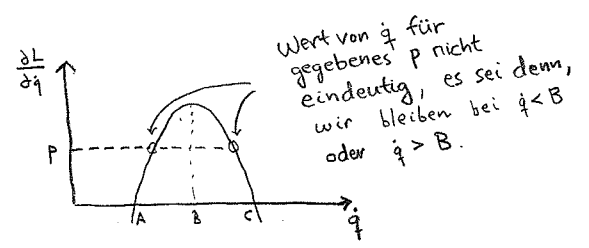 ∂L
∂q̇
Wert von q̇ für
gegebenes p nicht
eindeutig, es sei denn,
wir bleiben bei q̇<B
oder q̇ > B.
p
A B C
q̇